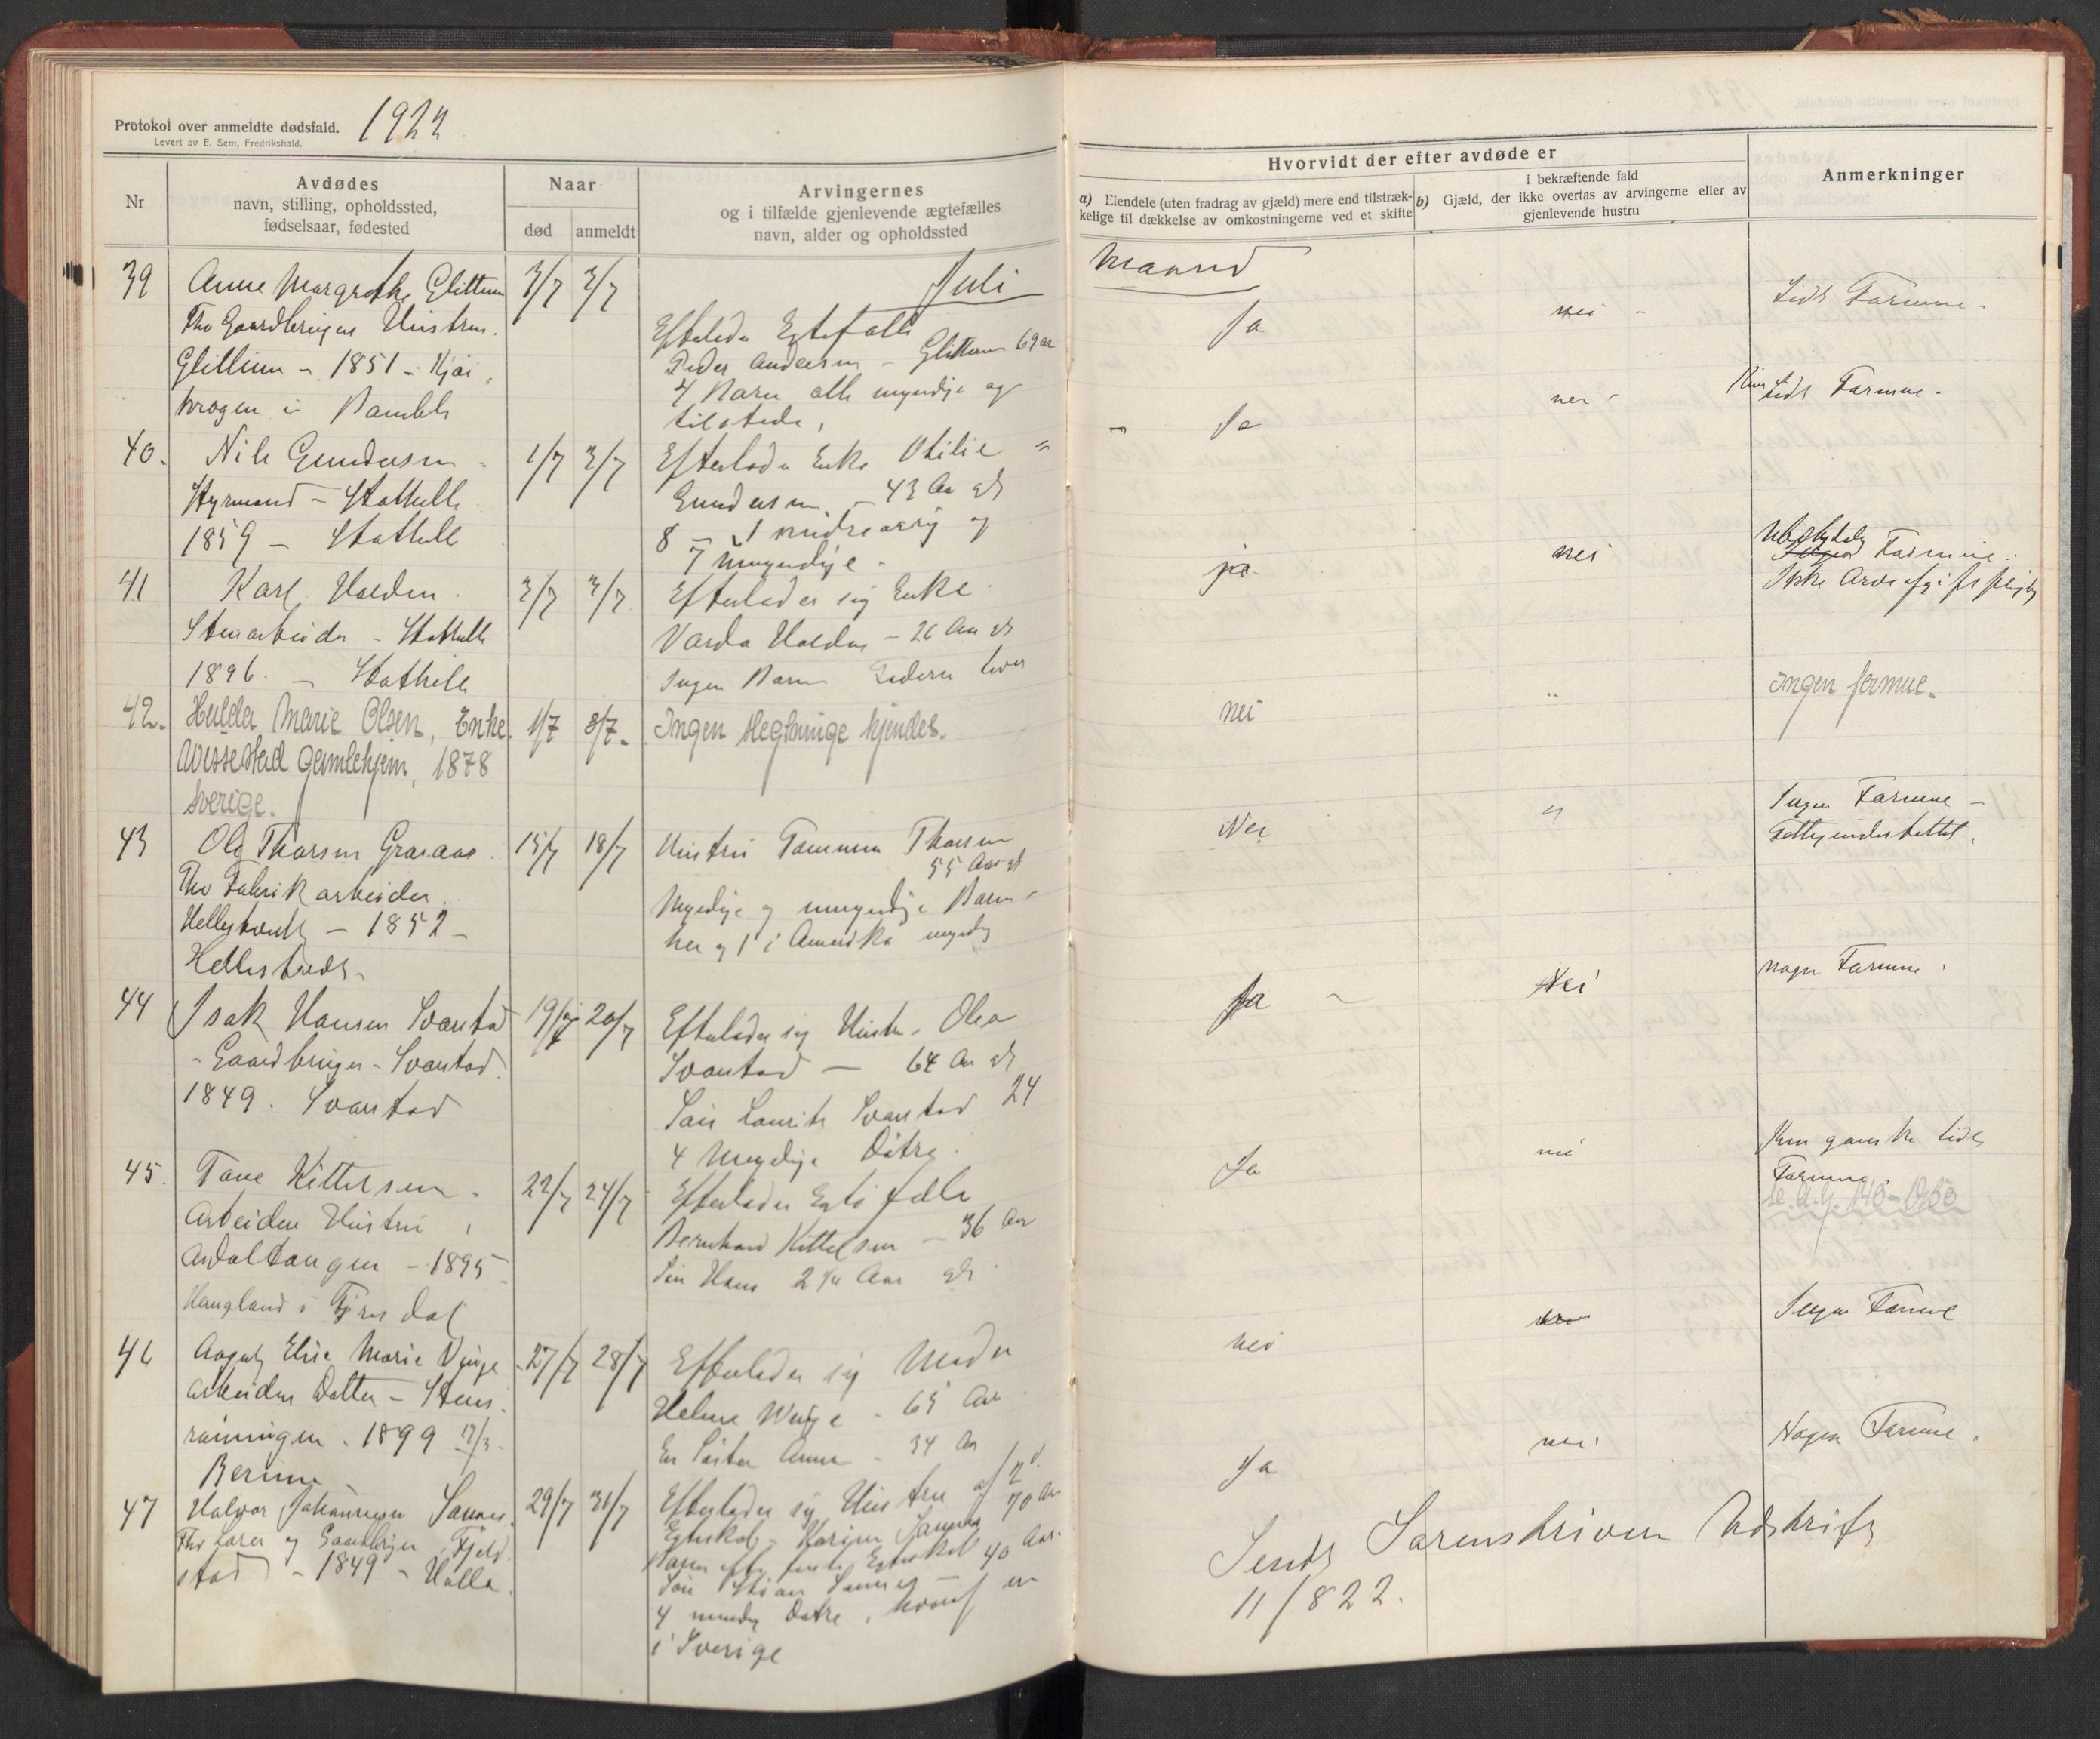 Protokol over anmeldte dødsfald. 1922
Levert av E. Sem, Fredrikshald.
Nr
Avdødes
navn, stilling, opholdssted,
fødselsaar, fødested
Naar
død
anmeldt
Arvingernes
og i tilfælde gjenlevende ægtefælles
navn, alder og opholdssted
Hvorvidt der efter avdøde er
a) Eiendele (uten fradrag av gjæld) mere end tilstræk-
kelige til dækkelse av omkostningerne ved et skifte
i bekræftende fald
b) Gjæld, der ikke overtas av arvingerne eller av
gjenlevende hustru
Anmerkninger
Juli
Maaned
39
Anne Margrethe Glittum
Fhv Gaardbruger Hustru
Glittum - 1851 -
i Bamble
3/7 3/7
Efterlader Egtefælle
Peder Andersen - Glittum 69 aar
4 Barn alle myndige og
tilstede,
Ja
nei -
Lidt Formue.
40.
Nils Gundersen
Styrmand - Stathelle
1859 - Stathelle
1/7 3/7
Efterlader Enke Otilie
Gundersen - 43 Aar gl
8 - 1 mindreaarig og
7 myndige.
Ja
nei -
Kun lidt Formue.
41
Karl Halden.
Stenarbeider - Stathelle
1896. - Stathelle
3/7 3/7
Efterlader sig Enke
Varda Halden - 26 Aar gl
Ingen Barn Faderen lever
ja
nei
Ubetydelig
Formue.
Ikke Arveafgiftspligtig
42.
Hulda Marie Olsen, Enke.
Wissestad Gamlehjem, 1878
Sverige.
1/7 8/7
Ingen slegtninge kjendes.
nei
"
Ingen formue.
43
Ole Thorsen Graaaas
Fhv Fabrikarbeider
- 1852 -
15/7 18/7
Hustru Tomine Thorsen
55 Aar gl
Myndige og umyndige Barn
her og 1 i Amerika myndig
Nei
"
Ingen Formue -
Fattigunderstøttet.
44
Isak Hansen Svanstad
- Gaardbruger - Svanstad
1849. Svanstad
19/7 20/7
Efterlader sig Hustru Olea
Svanstad - 64 Aar gl
Søn Laurits Svanstad 24
4 Myndige Døtre.
Ja
Nei
nogen Formue.
45.
Tone Kittelsen.
Arbeiders Hustru,
- 1895
i Fyresdal
22/7 24/7
Efterlader Egtefælle
Bernhard Kittelsen - 36 Aar
Søn Hans 2 1/4 Aar gl.
Ja
nei
Kun ganske lidt
Formue.
46
Aagot Elise Marie Vinje
arbeiders Datter - Stens-
rønningen. 1899 17/3.
27/7 28/7
Efterlader sig Moder
Helene Winje - 65 Aar
En Søster Anna - 34 Aar
nei
Ingen Formue
47
Halvor Johannesen Sannes
Fhv Lærer og Gaardbruger, Fjeld-
stad - 1849 - Holla.
29/7 31/7
Efterlader sig Hustru af 2d
Egteskab - Karine Sannes 70 Aar
Barn efter første Egteskab
Søn Stian Sannes - 40 Aar.
4 myndige Døtre, hvoraf en
i Sverige
Ja
nei.
Nogen Formue.
Sendt Sorenskriveren Udskrift
11/8 22.